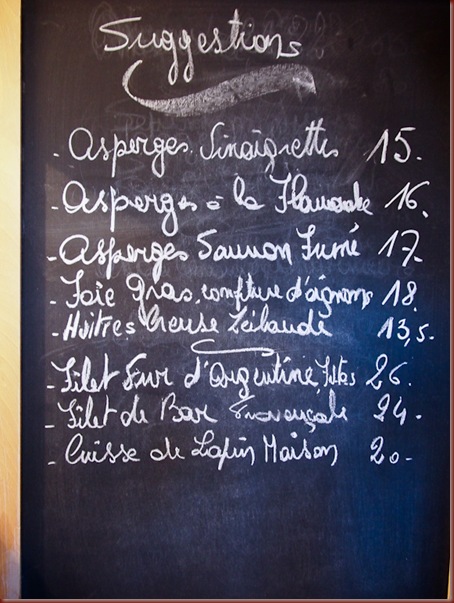 Suggestions
- Asperges Vinaigrette 15.
- Asperges à la Flamande 16.
- Asperges Saumon Fumé 17.
- Foie gras, confiture d'oignons 18.
- Huîtres Creuse Zélande 13,5.
- Filet d'Argentine, 26.
- Filet de Bar Provençale 24.
- Cuisse de Lapin Maison 20.